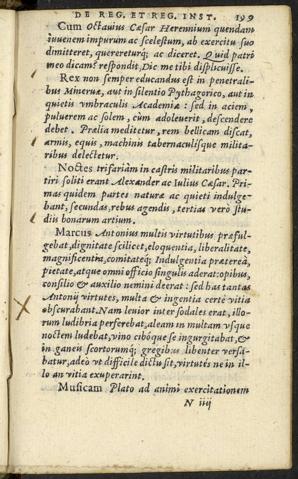 DE REG. ET REG. INST. 199
Cum Octauius Cæsar Herennium quendam
iuuenem impurum ac scelestum, ab exercitu suo
dimitteret, querereturq; ac diceret. Quid patri
meo dicam? respondit, Dic me tibi displicuisse.
Rex non semper educandus est in penetrali-
bus Mineruæ, aut in silentio Pythagorico, aut in
quietis vmbraculis Academiæ : sed in aciem,
puluerem ac solem, cùm adoleuerit, descendere
debet. Prælia meditetur, rem bellicam discat,
armis, equis, machinis tabernaculísque milita-
ribus delectetur.
Noctes trifariàm in castris militaribus par-
tiri soliti erant Alexander ac Iulius Cæsar. Pri-
mas quidem partes naturæ ac quieti indulge-
bant, secundas, rebus agendis, tertias verò stu-
diis bonarum artium.
Marcus Antonius multis virtutibus præful-
gebat, dignitate scilicet, eloquentia, liberalitate,
magnificentia, comitateq; Indulgentia prætereà,
pietate, atque omni officio singulis aderat: opibus,
consilio & auxilio nemini deerat : sed has tantas
Antonij virtutes, multa & ingentia certè vitia
obscurabant. Nam leuior inter sodales erat, illo-
rum ludibria perferebat, aleam in multam vsque
noctem ludebat, vino cibóque se ingurgitabat, &
in ganeis scortorumq; gregibus libenter versa-
batur, adeò vt difficile dictu sit, virtutés ne in il-
lo an vitia exuperarint.
Musicam Plato ad animi exercitationem
N iiij